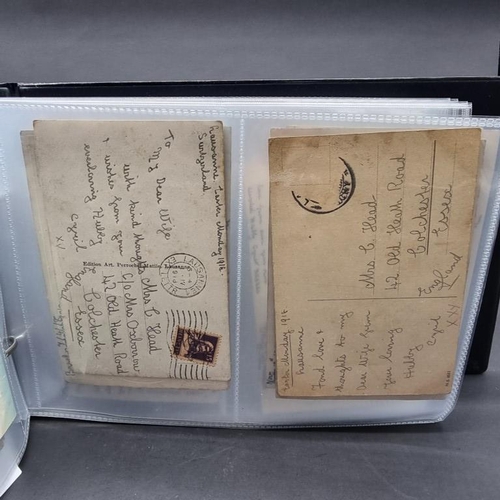 Lausanne Easter Monday 1918.
Switzerland
To
My Dear Wife
with kind thoughts
& wishes from your
everloving Hubby
Cyril
XX
Mrs C Head
C/o Mrs Oxborrow
42 Old Heath Road
Colchester
Essex
Edition Art.
LAUSANNE
Easter Monday 1918
Lausanne
Fond love &
thoughts to my
Dear Wife from
Your loving
Hubby
Cyril
XXX
Mrs C. Head
42 Old Heath Road
Colchester
Essex
England